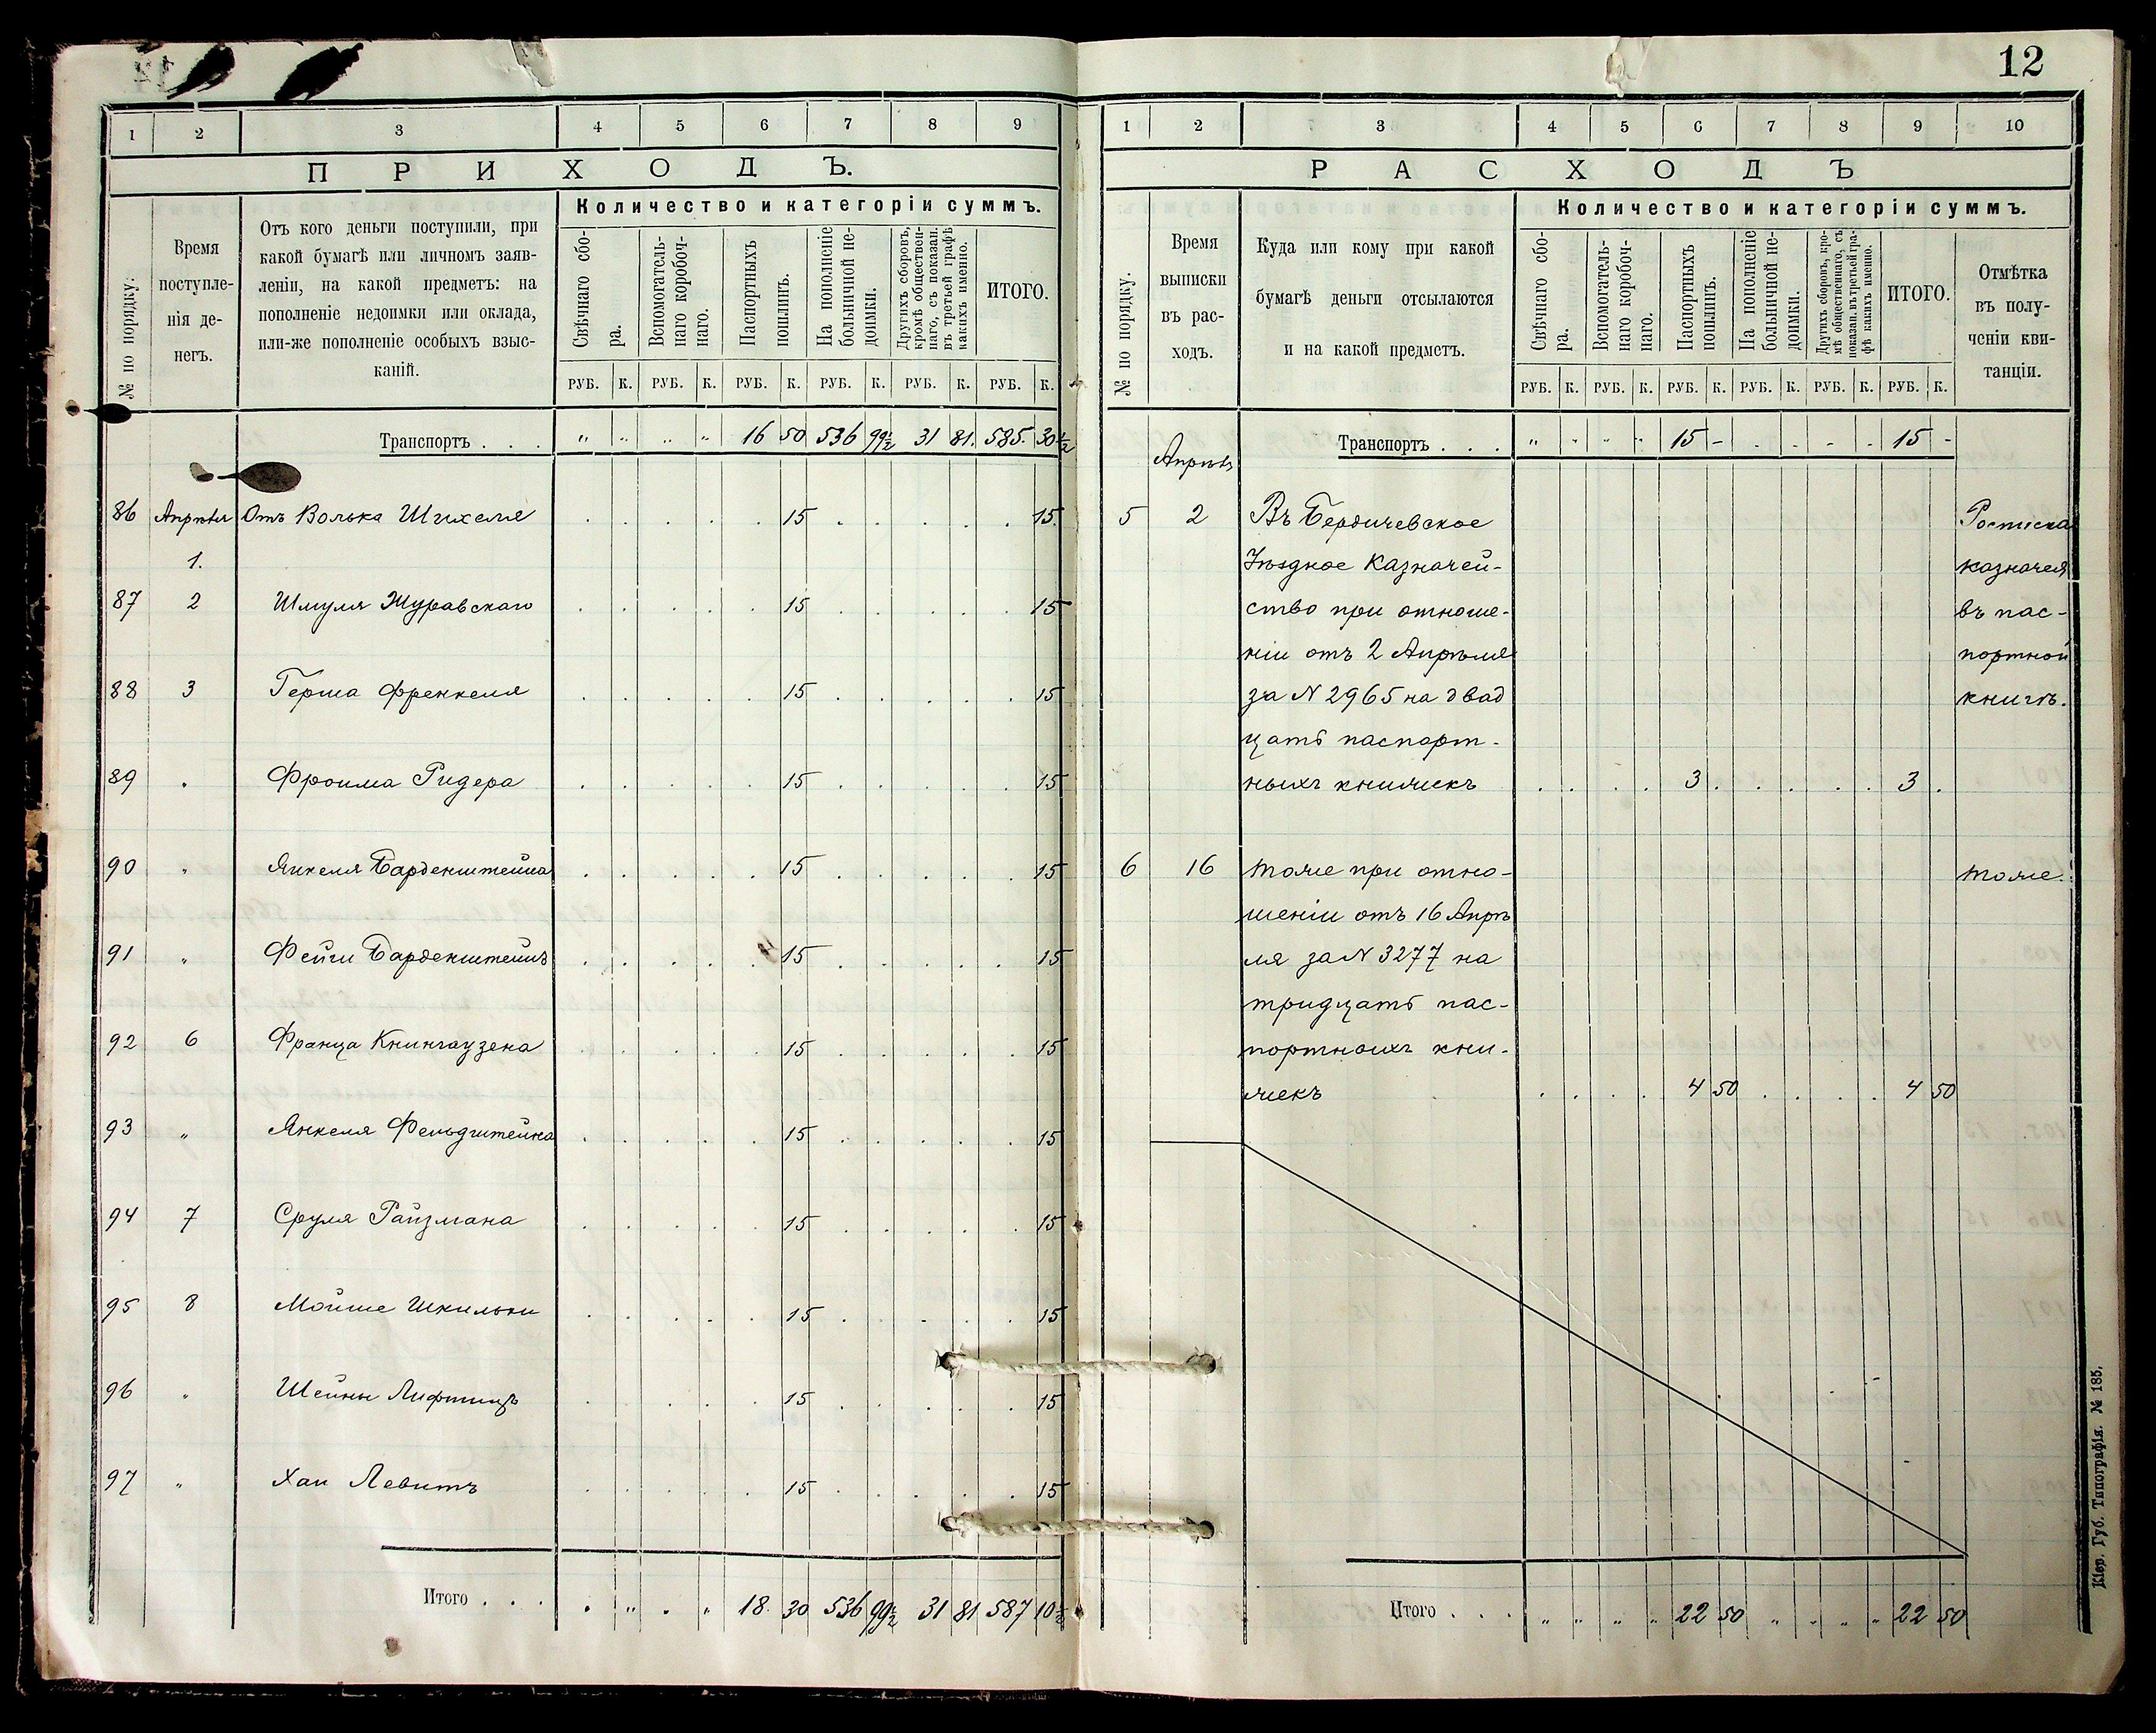 12
1 2 3 4 5 6 7 8 9
ПРИХОДЪ.
№ по порядку.
Время
поступле-
нія де-
негъ.
Отъ кого деньги поступили, при
какой бумагѣ или личномъ заяв-
леніи, на какой предметъ: на
пополненіе недоимки или оклада,
или-же пополненіе особыхъ взыс-
каній.
Количество и категоріи суммъ.
Свѣчнаго сбо-
ра.
Вспомогатель-
наго коробоч-
наго.
Паспортныхъ
пошлинъ.
На пополненіе
больничной не-
доимки.
Другихъ сборовъ,
кромѣ обществен-
наго, съ показан.
въ третьей графѣ
какихъ именно.
ИТОГО.
РУБ. К. РУБ. К. РУБ. К. РУБ. К. РУБ. К. РУБ. К.
Транспортъ . . . " " " " 16 50 536 99½ 31 81. 585. 30½
86 Апрѣля Отъ Волька Шихеля 15 15.
1.
87 2 Шмуля Журавскаго 15 15
88 3 Герша Френкеля 15 15
89 . Фроима Ридера 15 15
90 " Янкеля Барденштейна 15 15
91 " Фейги Барденштейнъ 15 15
92 6 Франца Кнингаузена 15 15
93 " Янкеля Фельдштейна 15 15
94 7 Сруля Райзмана 15 15
95 8 Мойше Шкильки 15 15
96 " Шейны Лифшицъ 15 15
97 " Хаи Левитъ 15 15
Итого . . . . " . " 18. 30 536 99½ 31 81 587 10½
1 2 3 4 5 6 7 8 9 10
РАСХОДЪ
№ по порядку.
Время
выписки
въ рас-
ходъ.
Куда или кому при какой
бумагѣ деньги отсылаются
и на какой предметъ.
Количество и категоріи суммъ.
Свѣчнаго сбо-
ра.
Вспомогатель-
наго коробоч-
наго.
Паспортныхъ
пошлинъ.
На пополненіе
больничной не-
доимки.
Другихъ сборовъ, кро-
мѣ общественнаго, съ
показан. въ третьей гра-
фѣ какихъ именно.
ИТОГО.
Отмѣтка
въ полу-
ченіи кви-
танціи.
РУБ. К. РУБ. К. РУБ. К. РУБ. К. РУБ. К. РУБ. К.
Транспортъ . . . " " " " 15 - . . . . 15 -
Апрѣль
5 2 Въ Бердичевское Росписка
Уѣздное Казначей- казначея
ство при отноше- въ пас-
ніи отъ 2 Апрѣля портной
за N 2965 на двад книгѣ.
цать паспорт-
ныхъ книжекъ 3 . 3 .
6 16 тоже при отно- тоже.
шеніи отъ 16 Апрѣ
ля за N 3277 на
тридцать пас-
портныхъ кни-
жекъ 4 50 4 50
Итого . . . " " " " 22 50 " " " " 22 50
Кіев. Губ. Типографія. № 185.